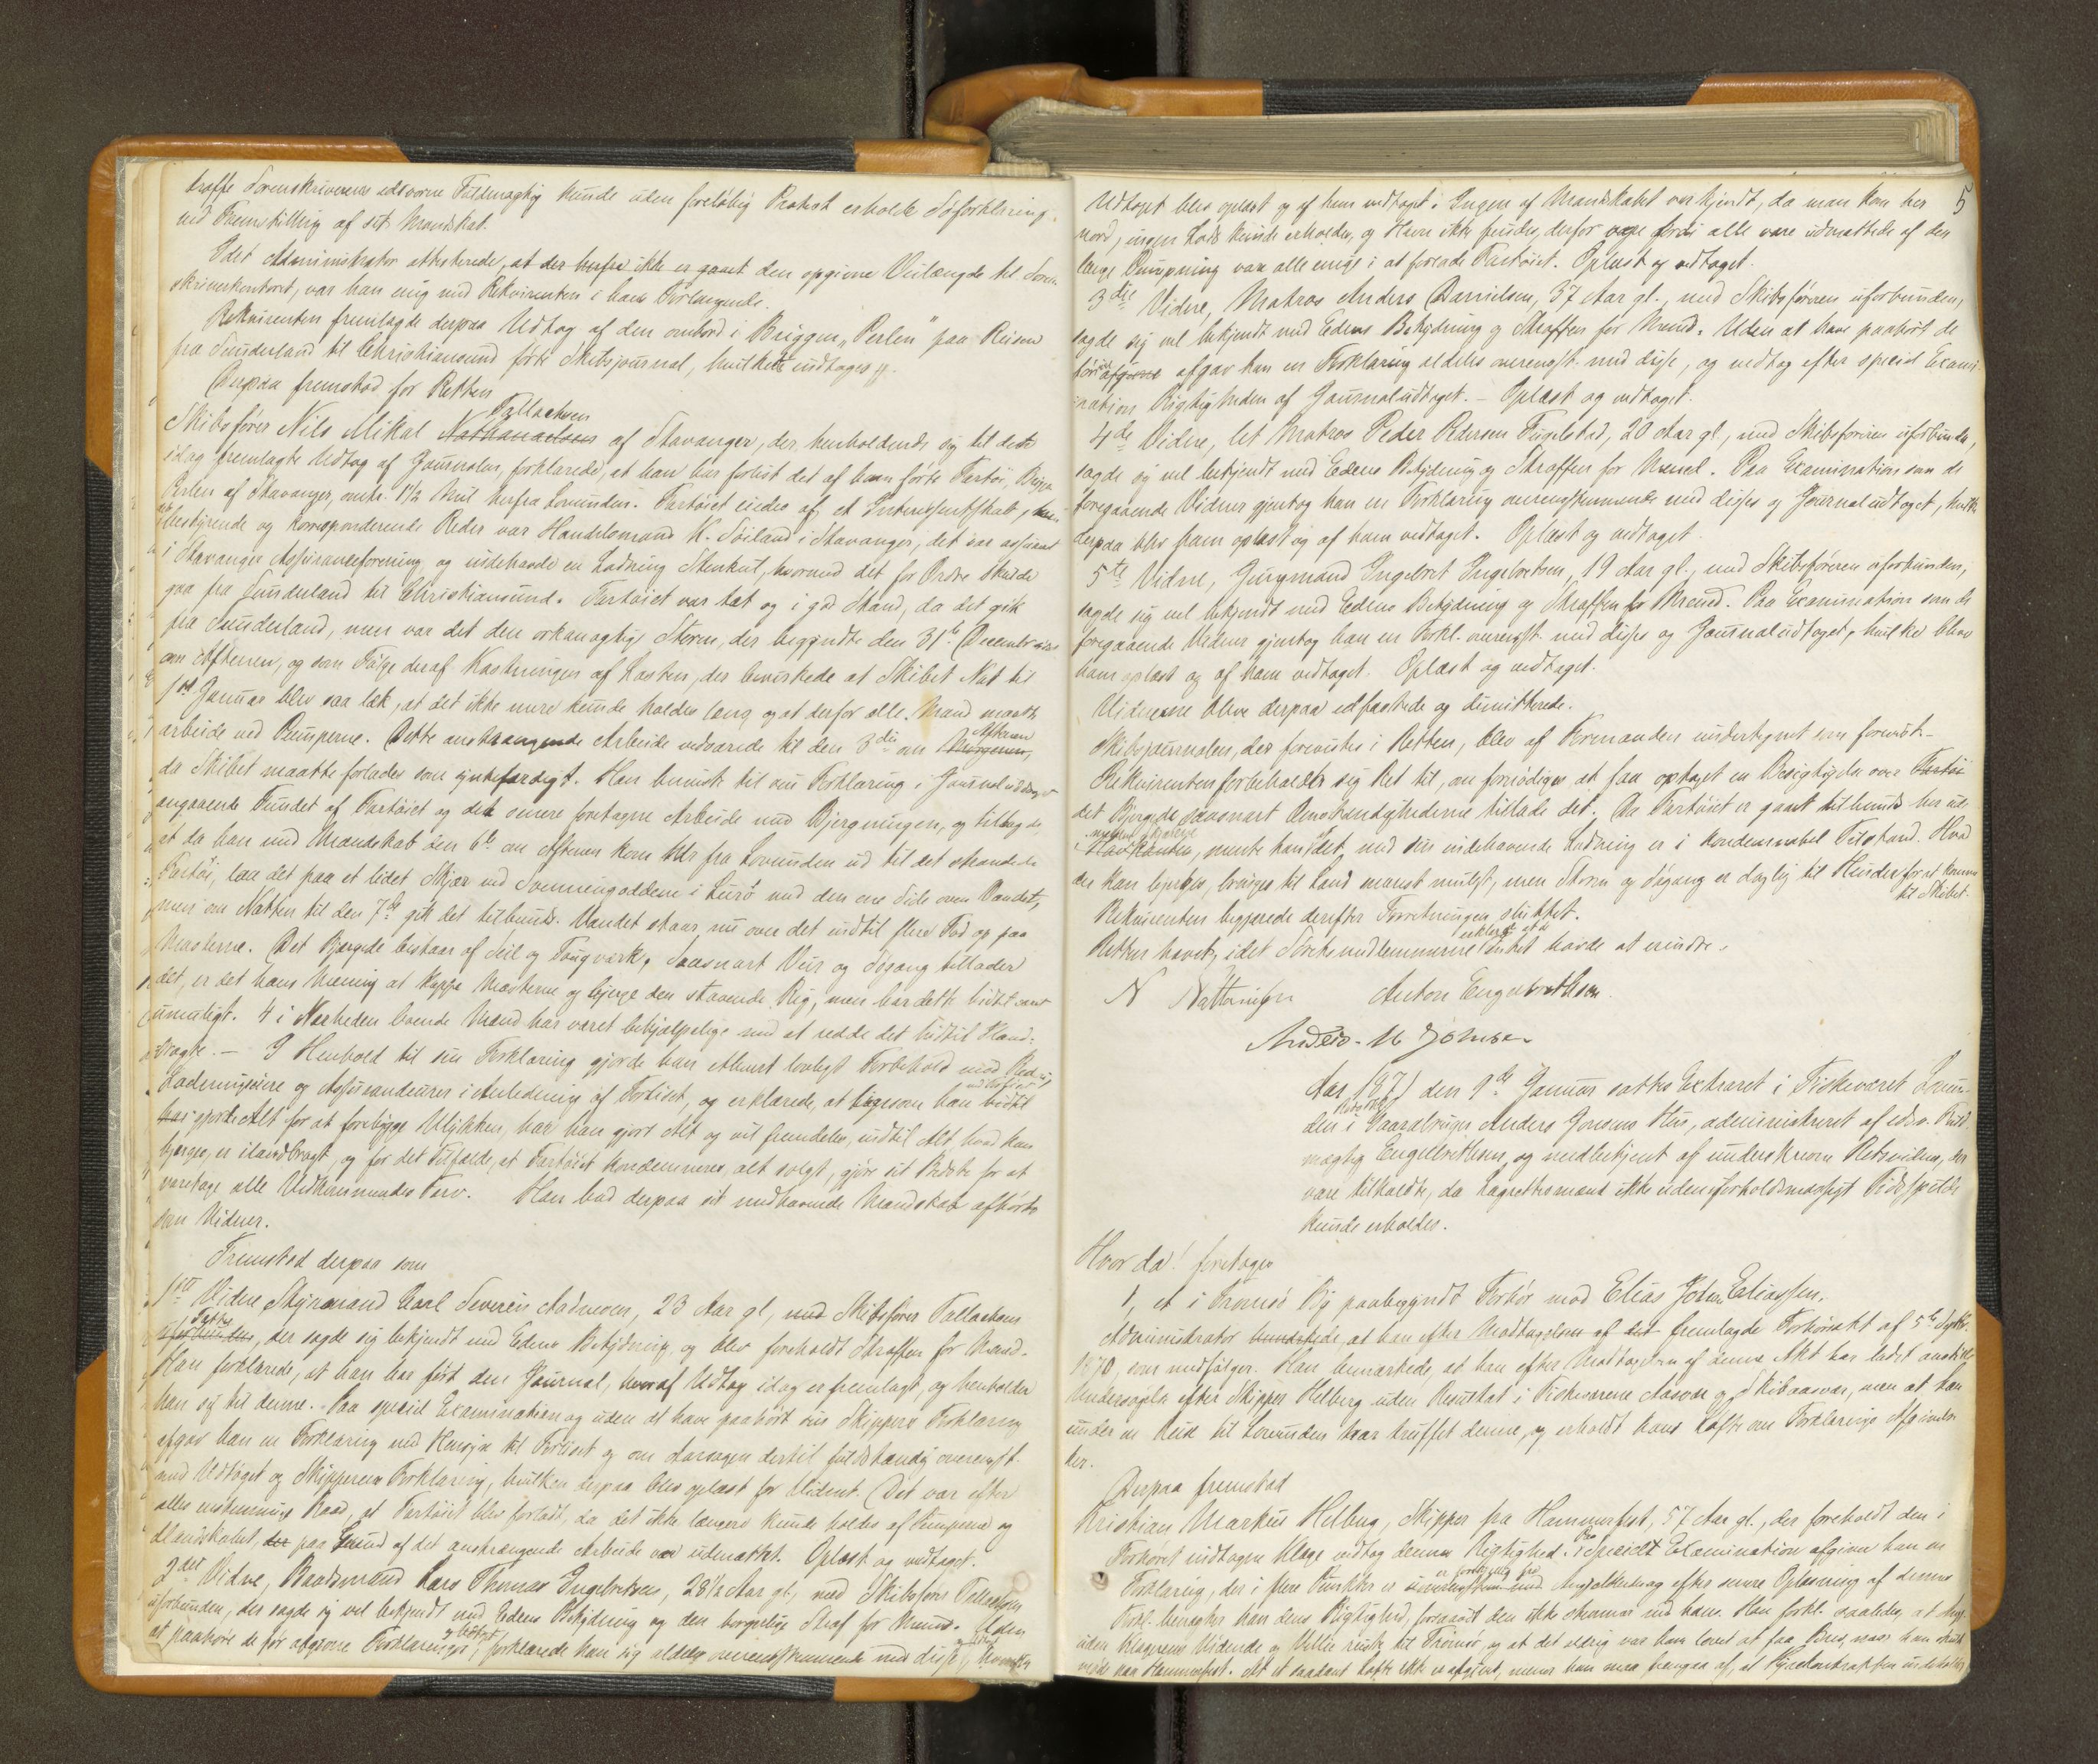 træffe Sorenskriverens edsvorne Fuldmægtig kunde uden foreløbig Protest erholde Søforklaring
ved Fremstilling af sit Mandskab.
Idet Administrator attesterede, at der herfra ikke er gaaet den opgivne Veilængde til Soren-
skriverkontoret, var han enig med Rekvirenten i hans Forlangende.
Rekvirenten fremlagde derpaa Udtog af den ombord i Briggen „Perlen“ paa Reisen
fra Sunderland til Christiansund førte Skibsjournal, hvilket indtages
Derpaa fremstod for Retten
Tallachsen
Skibsfører Nils Mikal af Stavanger, der, henholdende sig til det
idag fremlagte Udtog af Journalen, forklarede, at han har forlist det af ham førte Fartøi, Brig
Perlen af Stavanger, omtr. 1½ Miil herfra Lovunden. Fartøiet eiedes af et Interessentskab,
bestyrende og korresponderende Reder var Handelsmand K. Søiland i Stavanger, det var assureret
i Stavanger Assuranceforening og indehavde en Ladning Stenkul, hvormed det for Ordre skulde
gaa fra Sunderland til Christiansund. Fartøiet var tæt og i god Stand, da det gik
fra Sunderland, men var det den orkanagtige Storm, der begyndte den 31te December
om Aftenen, og som Følge deraf Kastningen af Lasten, der bevirkede at Skibet Nat til
1ste Januar blev saa læk, at det ikke mere kunde holdes læns og at derfor alle Mand maatte
Aftenen
arbeide ved Pumperne. Dette anstrængende Arbeide vedvarede til den 3die om Morgenen,
da Skibet maatte forlades som synkefærdigt. Han henviste til sin Forklaring i Journaludtoget
angaaende Fundet af Fartøiet og det senere foretagne Arbeide med Bjergningen, og tillagde,
at da han med Mandskab den 6te om Aftenen kom fra Lovunden ud til det strandede
Fartøi, laa det paa et lidet Skjær ved Svenningoddene i Lurø med den ene Side oven Vandet,
men om Natten til den 7de gik det tilbunds. Vandet staar nu over det indtil flere Fod op paa
Masterne. Det Bjergede bestaar af Seil og Tougværk, saasnart Veir og Søgang tillader
det, er det hans Mening at kappe Masterne og bjerge den staaende Rig, men har dette hidtil været
umuligt. 4 i Nærheden boende Mænd har været behjælpelige med at redde det hidtil iland-
bragte. – I Henhold til sin Forklaring gjorde han ethvert lovligt Forbehold mod Rederi,
Ladningseiere og Assurandeurer i Anledning af Forliset, og erklærede, at ligesom han hidtil
har gjort Alt for at forebygge Ulykken, har han gjort Alt og vil fremdeles, indtil Alt hvad kan
bjerges, er ilandbragt, og for det Tilfælde, at Fartøiet kondemneres, alt solgt, gjøre sit Bedste for at
varetage alle Vedkommendes Tarv. Han bad derpaa sit medhavende Mandskab afhørte
som Vidner.
Fremstod derpaa som
1ste Vidne Styrmand Carl Severin Aadnesen, 23 Aar gl, med Skibsfører Tallachsen
, der sagde sig bekjendt med Edens Betydning og blev foreholdt Straffen for Meened.
Han forklarede, at han har ført den Journal, hvoraf Udtog idag er fremlagt, og henholder
han sig til denne. Paa speciel Examination og uden at have paahørt sin Skippers Forklaring
afgav han en Forklaring med Hensyn til Forliset og om Aarsagen dertil fuldstændig overensst.
med Udtoget og Skipperens Forklaring, hvilken derpaa blev oplæst for Vidnet. Det var efter
alles enstemmige Raad, at Fartøiet blev forladt, da det ikke længere kunde holdes af Pumperne og
Mandskabet, der paa Grund af det anstrængende Arbeide var udmattet. Oplæst og vedtaget.
2det Vidne, Baadsmand Lars Thomas Engebretsen, 28½ Aar gl, med Skibsfører Tallachsen
uforbunden, der sagde sig vel bekjendt med Edens Betydning og den borgerlige Straf for Meened. Uden
at paahøre de før afgivne Forklaringer, forklarede han sig aldeles overensstemmende med disse,
5
Udtoget blev oplæst og af ham vedtaget. Ingen af Mandskabet var kjendt, da man kom her
nord, ingen Lods kunde erholdes, og Havn ikke findes, derfor og fordi alle vare udmattede af den
lange Pumpning vare alle enige i at forlade Fartøiet. Oplæst og vedtaget.
3die Vidne, Matros Anders Danielsen, 37 Aar gl., med Skibsføreren uforbunden,
sagde sig vel bekjendt med Edens Betydning og Straffen for Meened. Uden at have paahørt de
afgivne afgav han en Forklaring aldeles overensst. med disse, og vedtog efter speciel Exami-
nation Rigtigheden af Journaludtoget. – Oplæst og vedtaget.
4de Vidne, let Matros Peder Pedersen Fugelstad, 20 Aar gl., med Skibsføreren uforbunden,
sagde sig vel bekjendt med Edens Betydning og Straffen for Meened. Paa Examination som de
foregaaende Vidner gjentog han en Forklaring overensstemmende med disses og Journaludtoget, hvilke
derpaa blev ham oplæst og af ham vedtaget. Oplæst og vedtaget.
5te Vidne, Jungmand Ingebret Ingebretsen, 19 Aar gl., med Skibsføreren uforbunden,
sagde sig vel bekjendt med Edens Betydning og Straffen for Meened. Paa Examination som de
foregaaende Vidner gjentog han en Forkl. overensst. med disses og Journaludtoget, hvilke blev
ham oplæst og af ham vedtaget. Oplæst og vedtaget.
Vidnerne bleve derpaa edfæstede og dimitterede.
Skibsjournalen, der forevistes i Retten, blev af Formanden undertegnet som forevist.
Rekvirenten forbeholdt sig Ret til, om fornødiges at faa optaget en Besigtigelse over Fartøi
det Bjergede saasnart Omstændighederne tillade det. Da Fartøiet er gaaet tilbunds her ude
i Havkanten, mente han, at det med sin indehavende Ladning er i kondemnabel Tilstand. Hvad
der kan bjerges, bringes til Land snarest muligt, men Storm og Søgang er daglig til Hinder for at komme
til Skibet.
Rekvirenten begjærede derefter Forretningen sluttet.
erklærede at de
Retten hævet, idet Rettens medlemmerne Intet havde at erindre.
N Anton Engebrethsen
Anders M Jonsen
Aar 1871 den 9de Januar sattes Extraret i Fiskeværet Lovun-
den i Gaardbruger Anders Jonsens Hus, administreret af edsv. Fuld-
mægtig Engelbrethsen, og medbetjent af underskrevne Retsvidner, der
vare tilkaldte, da Lagrettesmænd ikke uden uforholdsmæssigt Tidsspilde
kunde erholdes.
Hvor da! foretoges
1, et i Tromsø By paabegyndt Forhør mod Elias Johan Eliassen.
Administrator, at han efter Modtagelsen af det fremlagde Forhørsakt af 5te Septbr.
1870, som medfølger. Han bemærkede, at han efter Modtagelsen af denne Akt har ladet anstille
Undersøgelse efter Skipper Helberg uden Resultat i Fiskeværene Aasvær og Skibaasvær, men at han
under en Reise til Lovunden har truffet denne, og erholdt hans Løfte om Forklarings Afgivelse
her.
Derpaa fremstod
Kristian Markus Helberg, Skipper fra Hammerfest, 57 Aar gl., der foreholdt den i
Forhøret indtagne Klage vedtog dennes Rigtighed. Paa specielt Examination afgiver han en
Forklaring, der i flere Punkter er, og efter senere Oplæsning af dennes
Forkl. benægter han dens Rigtighed, forsaavidt den ikke stemmer med hans. Han forkl. saaledes, at
uden Klagerens Vidende og Villie reiste til Tromsø, og at det aldrig var ham lovet at faa, naar han
reiste paa Hammerfest. At et saadant Løfte ikke er afgivet, mener han maa fremgaa af, at Hyrekontrakten indeholder